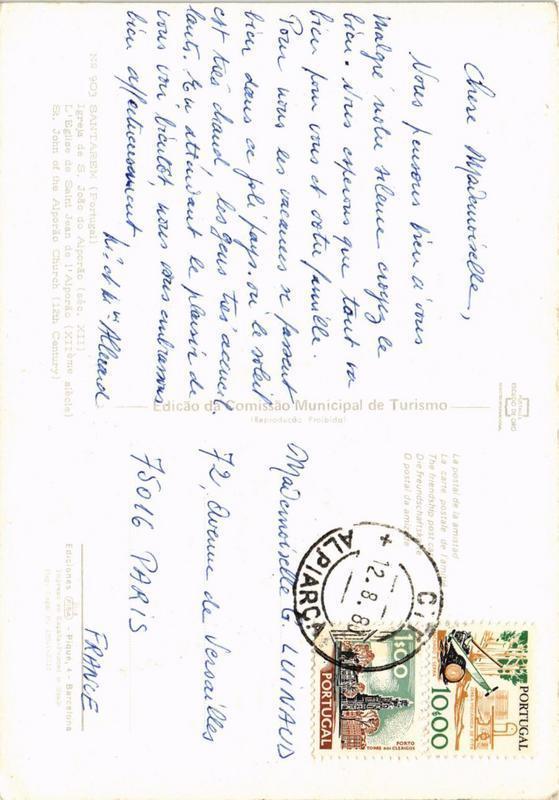 Chère Mademoiselle,
Nous pensons bien à vous
malgré notre silence croyez le
bien. Nous espérons que tout va
bien pour vous et votre famille.
Pour nous les vacances se passent
bien dans ce joli pays. où le soleil
est très chaud, les gens très accueil-
lants. En attendant le plaisir de
vous voir bientôt, nous vous embrassons
bien affectueusement
Nº 903 SANTAREM (Portugal)
Igreja de S. João do Alporão (séc. XII)
L'Eglise de Saint Jean de l'Alporão (XIIème siècle)
St. John of the Alporão Church (12th Century)
Edição da Comissão Municipal de Turismo
(Reprodução Proibida)
La postal de la amistad
La carte postale de l'ami
The friendship post
Die Freundschafts
O postal da amiz
Mademoiselle G. LUINAUD
72, Avenue de Versailles
75016 PARIS
FRANCE
Ediciones FISA - Pique, 4 - Barcelona
ALPIARÇA
12.8.8
1$00
PORTUGAL
PORTO
TORRE DOS CLÉRIGOS
PORTUGAL
10$00